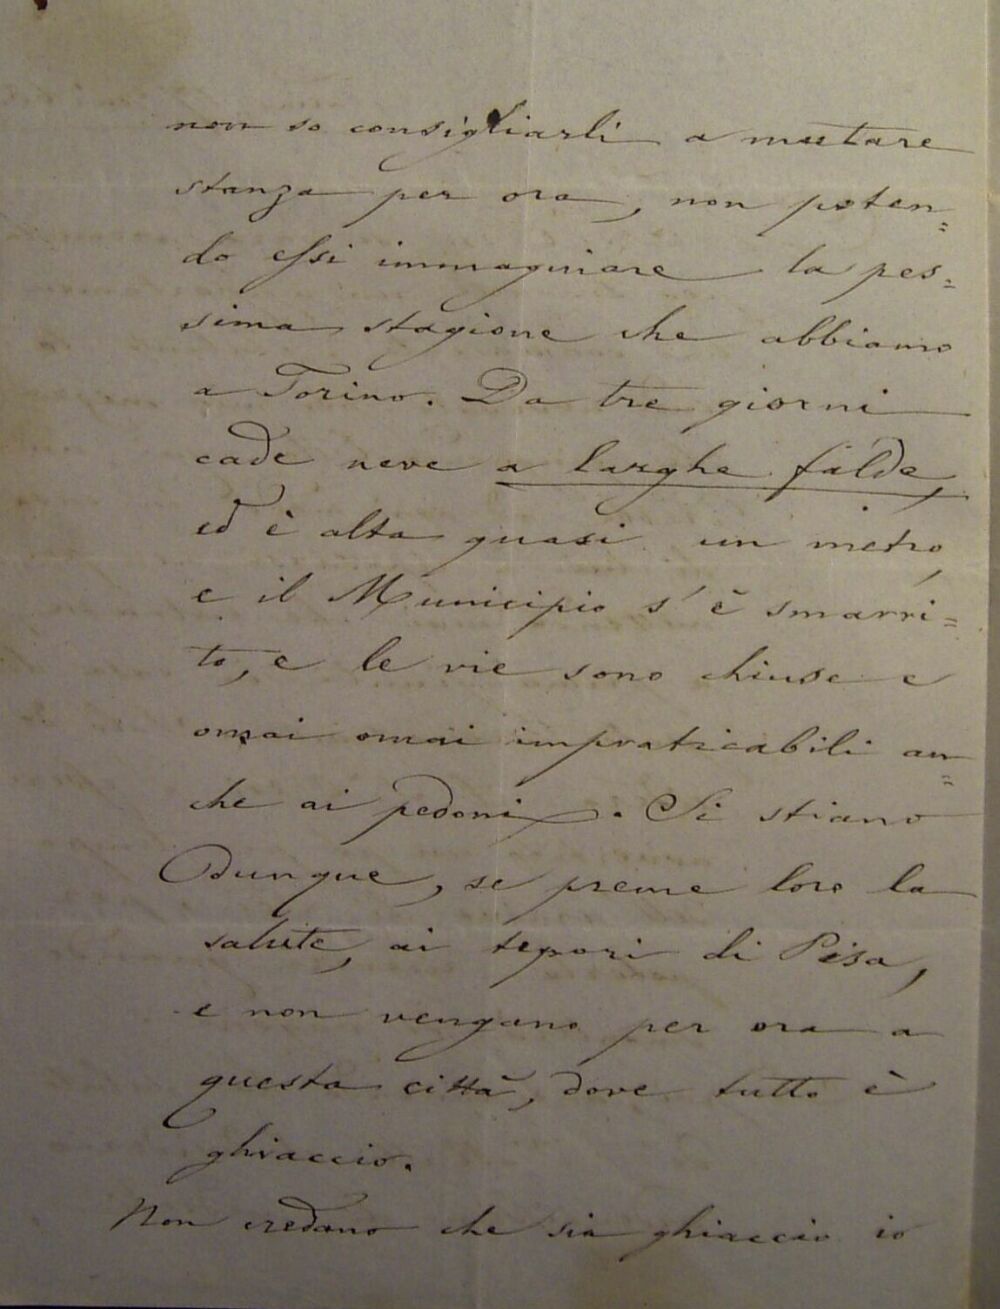 non so consigliarli a mutare
stanza per ora, non poten=
do essi immaginare la pes=
sima stagione che abbiamo
a Torino. Da tre giorni
cade neve a larghe falde,
ed è alta quasi un metro,
e il Municipio s'è smarri=
to, e le vie sono chiuse e
omai omai impraticabili an=
che ai pedoni. Si stiano
dunque, se preme loro la
salute, ai tepori di Pisa,
e non vengano per ora a
questa città, dove tutto è
ghiaccio.
Non credano che sia ghiaccio io